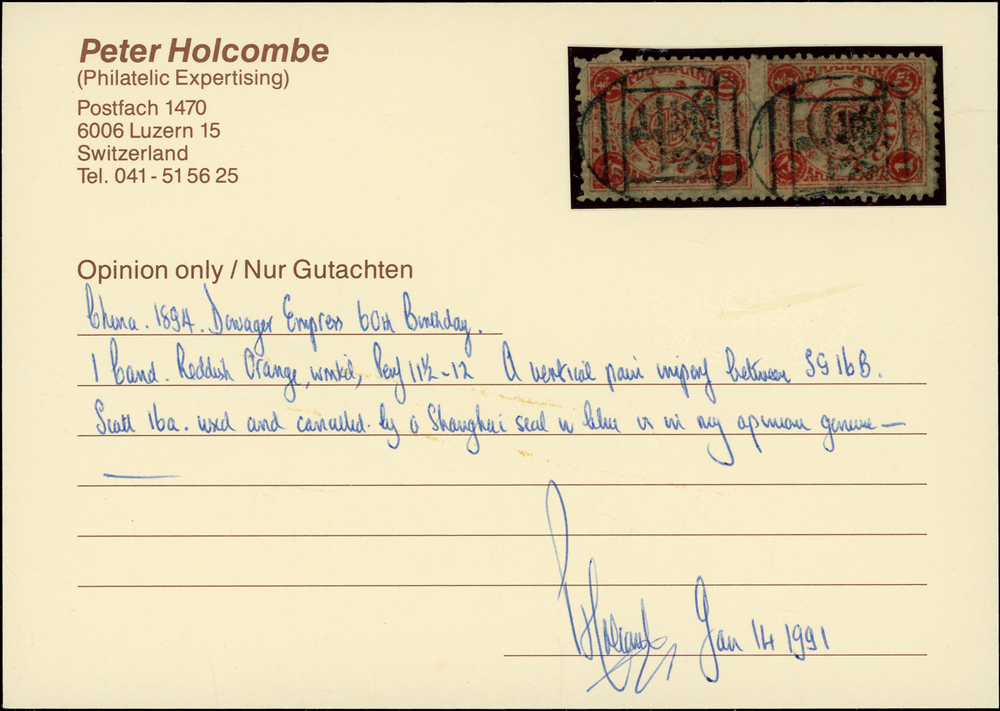 Peter Holcombe
(Philatelic Expertising)
Postfach 1470
6006 Luzern 15
Switzerland
Tel. 041 - 51 56 25
Opinion only / Nur Gutachten
China. 1894. Dowager Empress 60th Birthday.
1 Cand. Reddish Orange, wmkd, Perf 11½-12 A vertical pair imperf between SG 16B.
Scott 16a. used and cancelled by a Shanghai seal in blue is in my opinion genuine —
P Holcombe Jan 14 1991